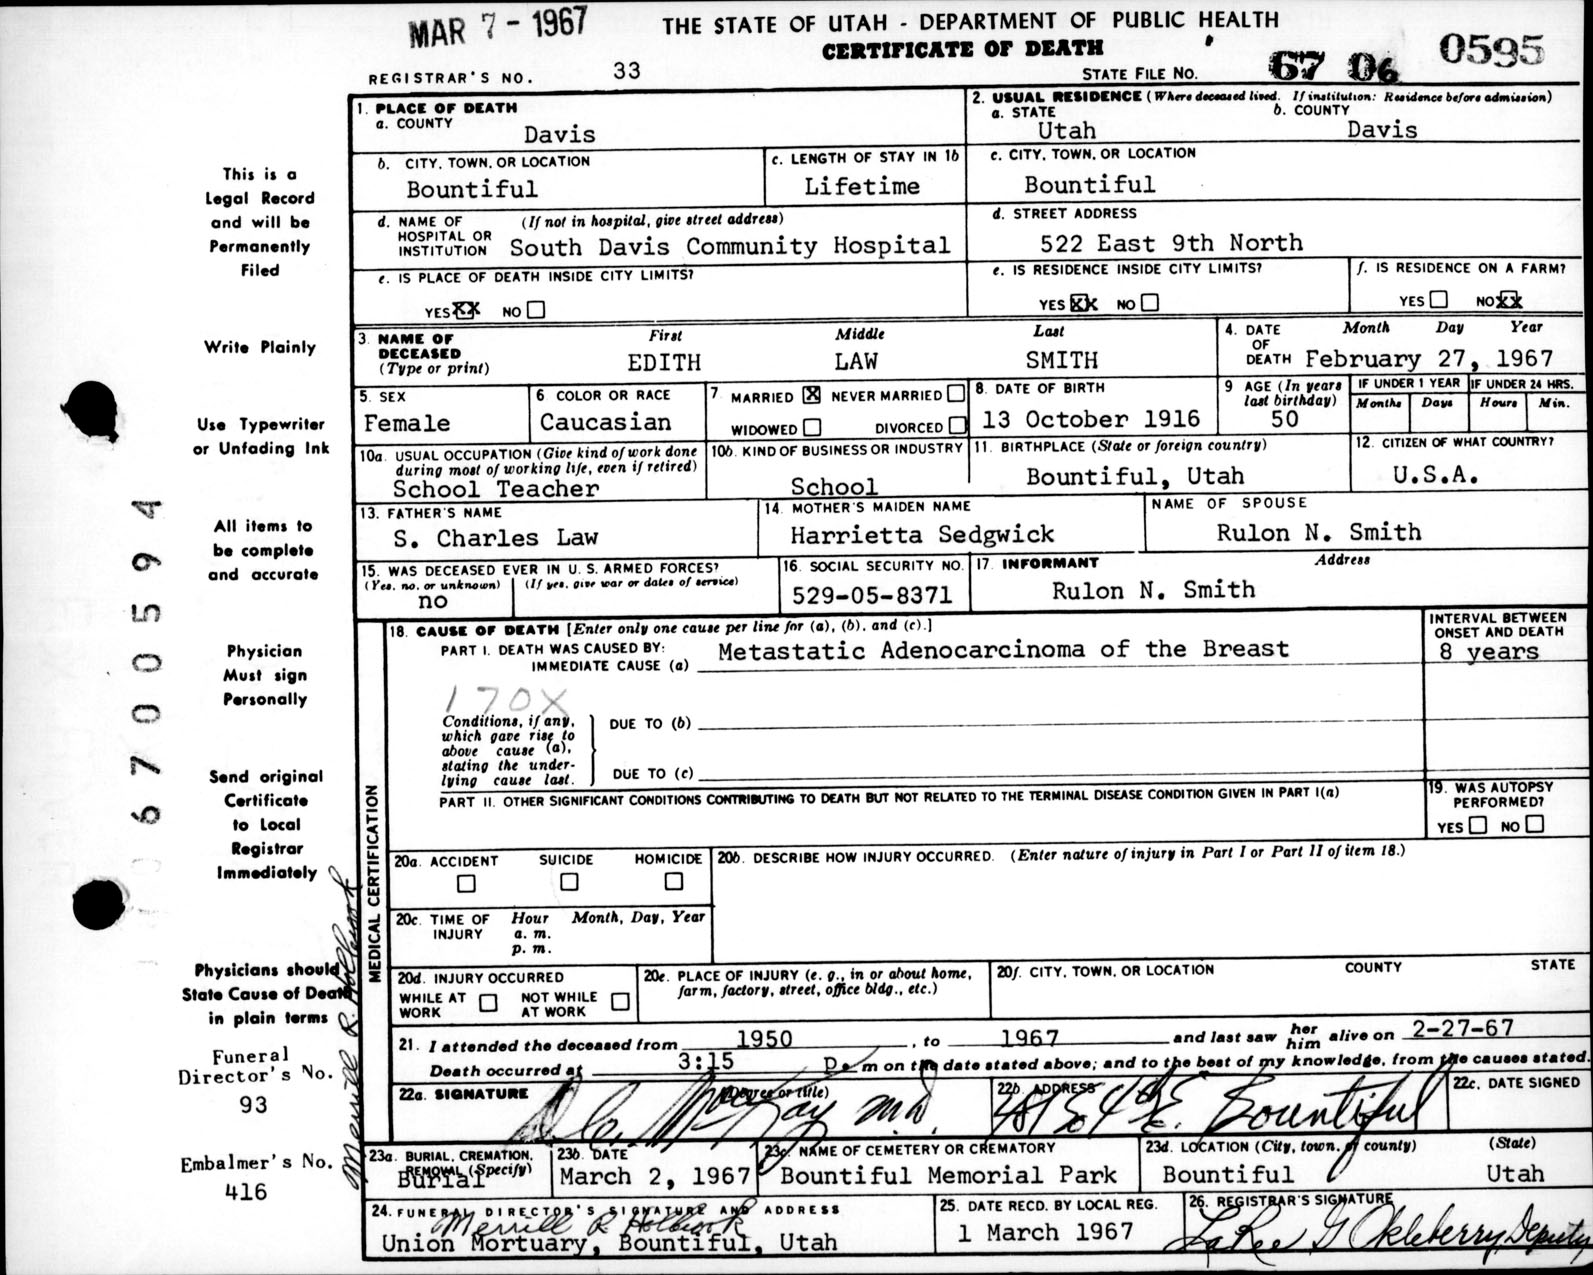 MAR 7 - 1967
THE STATE OF UTAH - DEPARTMENT OF PUBLIC HEALTH
CERTIFICATE OF DEATH
REGISTRAR'S NO. 33
STATE FILE NO. 67 06 0595
1. PLACE OF DEATH
a. COUNTY
Davis
2. USUAL RESIDENCE (Where deceased lived. If institution: Residence before admission)
a. STATE b. COUNTY
Utah Davis
b. CITY, TOWN, OR LOCATION
Bountiful
c. LENGTH OF STAY IN 1b
Lifetime
c. CITY, TOWN, OR LOCATION
Bountiful
d. NAME OF HOSPITAL OR INSTITUTION (If not in hospital, give street address)
South Davis Community Hospital
d. STREET ADDRESS
522 East 9th North
e. IS PLACE OF DEATH INSIDE CITY LIMITS?
YES XX NO
e. IS RESIDENCE INSIDE CITY LIMITS?
YES XX NO
f. IS RESIDENCE ON A FARM?
YES NO XX
3. NAME OF DECEASED (Type or print)
First Middle Last
EDITH LAW SMITH
4. DATE OF DEATH Month Day Year
February 27, 1967
5. SEX
Female
6. COLOR OR RACE
Caucasian
7. MARRIED X NEVER MARRIED
WIDOWED DIVORCED
8. DATE OF BIRTH
13 October 1916
9 AGE (In years last birthday)
50
IF UNDER 1 YEAR IF UNDER 24 HRS.
Months Days Hours Min.
10a. USUAL OCCUPATION (Give kind of work done during most of working life, even if retired)
School Teacher
10b. KIND OF BUSINESS OR INDUSTRY
School
11. BIRTHPLACE (State or foreign country)
Bountiful, Utah
12. CITIZEN OF WHAT COUNTRY?
U.S.A.
13. FATHER'S NAME
S. Charles Law
14. MOTHER'S MAIDEN NAME
Harrietta Sedgwick
NAME OF SPOUSE
Rulon N. Smith
15. WAS DECEASED EVER IN U. S. ARMED FORCES?
(Yes, no, or unknown) (If yes, give war or dates of service)
no
16. SOCIAL SECURITY NO.
529-05-8371
17. INFORMANT Address
Rulon N. Smith
MEDICAL CERTIFICATION
18. CAUSE OF DEATH [Enter only one cause per line for (a), (b), and (c).]
PART I. DEATH WAS CAUSED BY:
IMMEDIATE CAUSE (a) Metastatic Adenocarcinoma of the Breast
INTERVAL BETWEEN ONSET AND DEATH
8 years
170X
Conditions, if any, which gave rise to above cause (a), stating the underlying cause last.
DUE TO (b)
DUE TO (c)
PART II. OTHER SIGNIFICANT CONDITIONS CONTRIBUTING TO DEATH BUT NOT RELATED TO THE TERMINAL DISEASE CONDITION GIVEN IN PART I(a)
19. WAS AUTOPSY PERFORMED?
YES NO
20a. ACCIDENT SUICIDE HOMICIDE
20b. DESCRIBE HOW INJURY OCCURRED. (Enter nature of injury in Part I or Part II of item 18.)
20c. TIME OF INJURY Hour Month, Day, Year
a. m.
p. m.
20d. INJURY OCCURRED
WHILE AT WORK NOT WHILE AT WORK
20e. PLACE OF INJURY (e. g., in or about home, farm, factory, street, office bldg., etc.)
20f. CITY, TOWN, OR LOCATION COUNTY STATE
21. I attended the deceased from 1950, to 1967 and last saw her him alive on 2-27-67
Death occurred at 3:15 P. m on the date stated above; and to the best of my knowledge, from the causes stated.
22a. SIGNATURE (Degree or title)
D. C. McKay M.D.
22b. ADDRESS
E. Bountiful
22c. DATE SIGNED
23a. BURIAL, CREMATION, REMOVAL (Specify)
Burial
23b. DATE
March 2, 1967
23c. NAME OF CEMETERY OR CREMATORY
Bountiful Memorial Park
23d. LOCATION (City, town, or county) (State)
Bountiful Utah
24. FUNERAL DIRECTOR'S SIGNATURE AND ADDRESS
Merrill R Holbrook
Union Mortuary, Bountiful, Utah
25. DATE RECD. BY LOCAL REG.
1 March 1967
26. REGISTRAR'S SIGNATURE
LaRee G Okleberry, Deputy
This is a
Legal Record
and will be
Permanently
Filed
Write Plainly
Use Typewriter
or Unfading Ink
All items to
be complete
and accurate
Physician
Must sign
Personally
Send original
Certificate
to Local
Registrar
Immediately
Physicians should
State Cause of Death
in plain terms
Funeral
Director's No.
93
Embalmer's No.
416
Merrill R. Holbrook
06700594